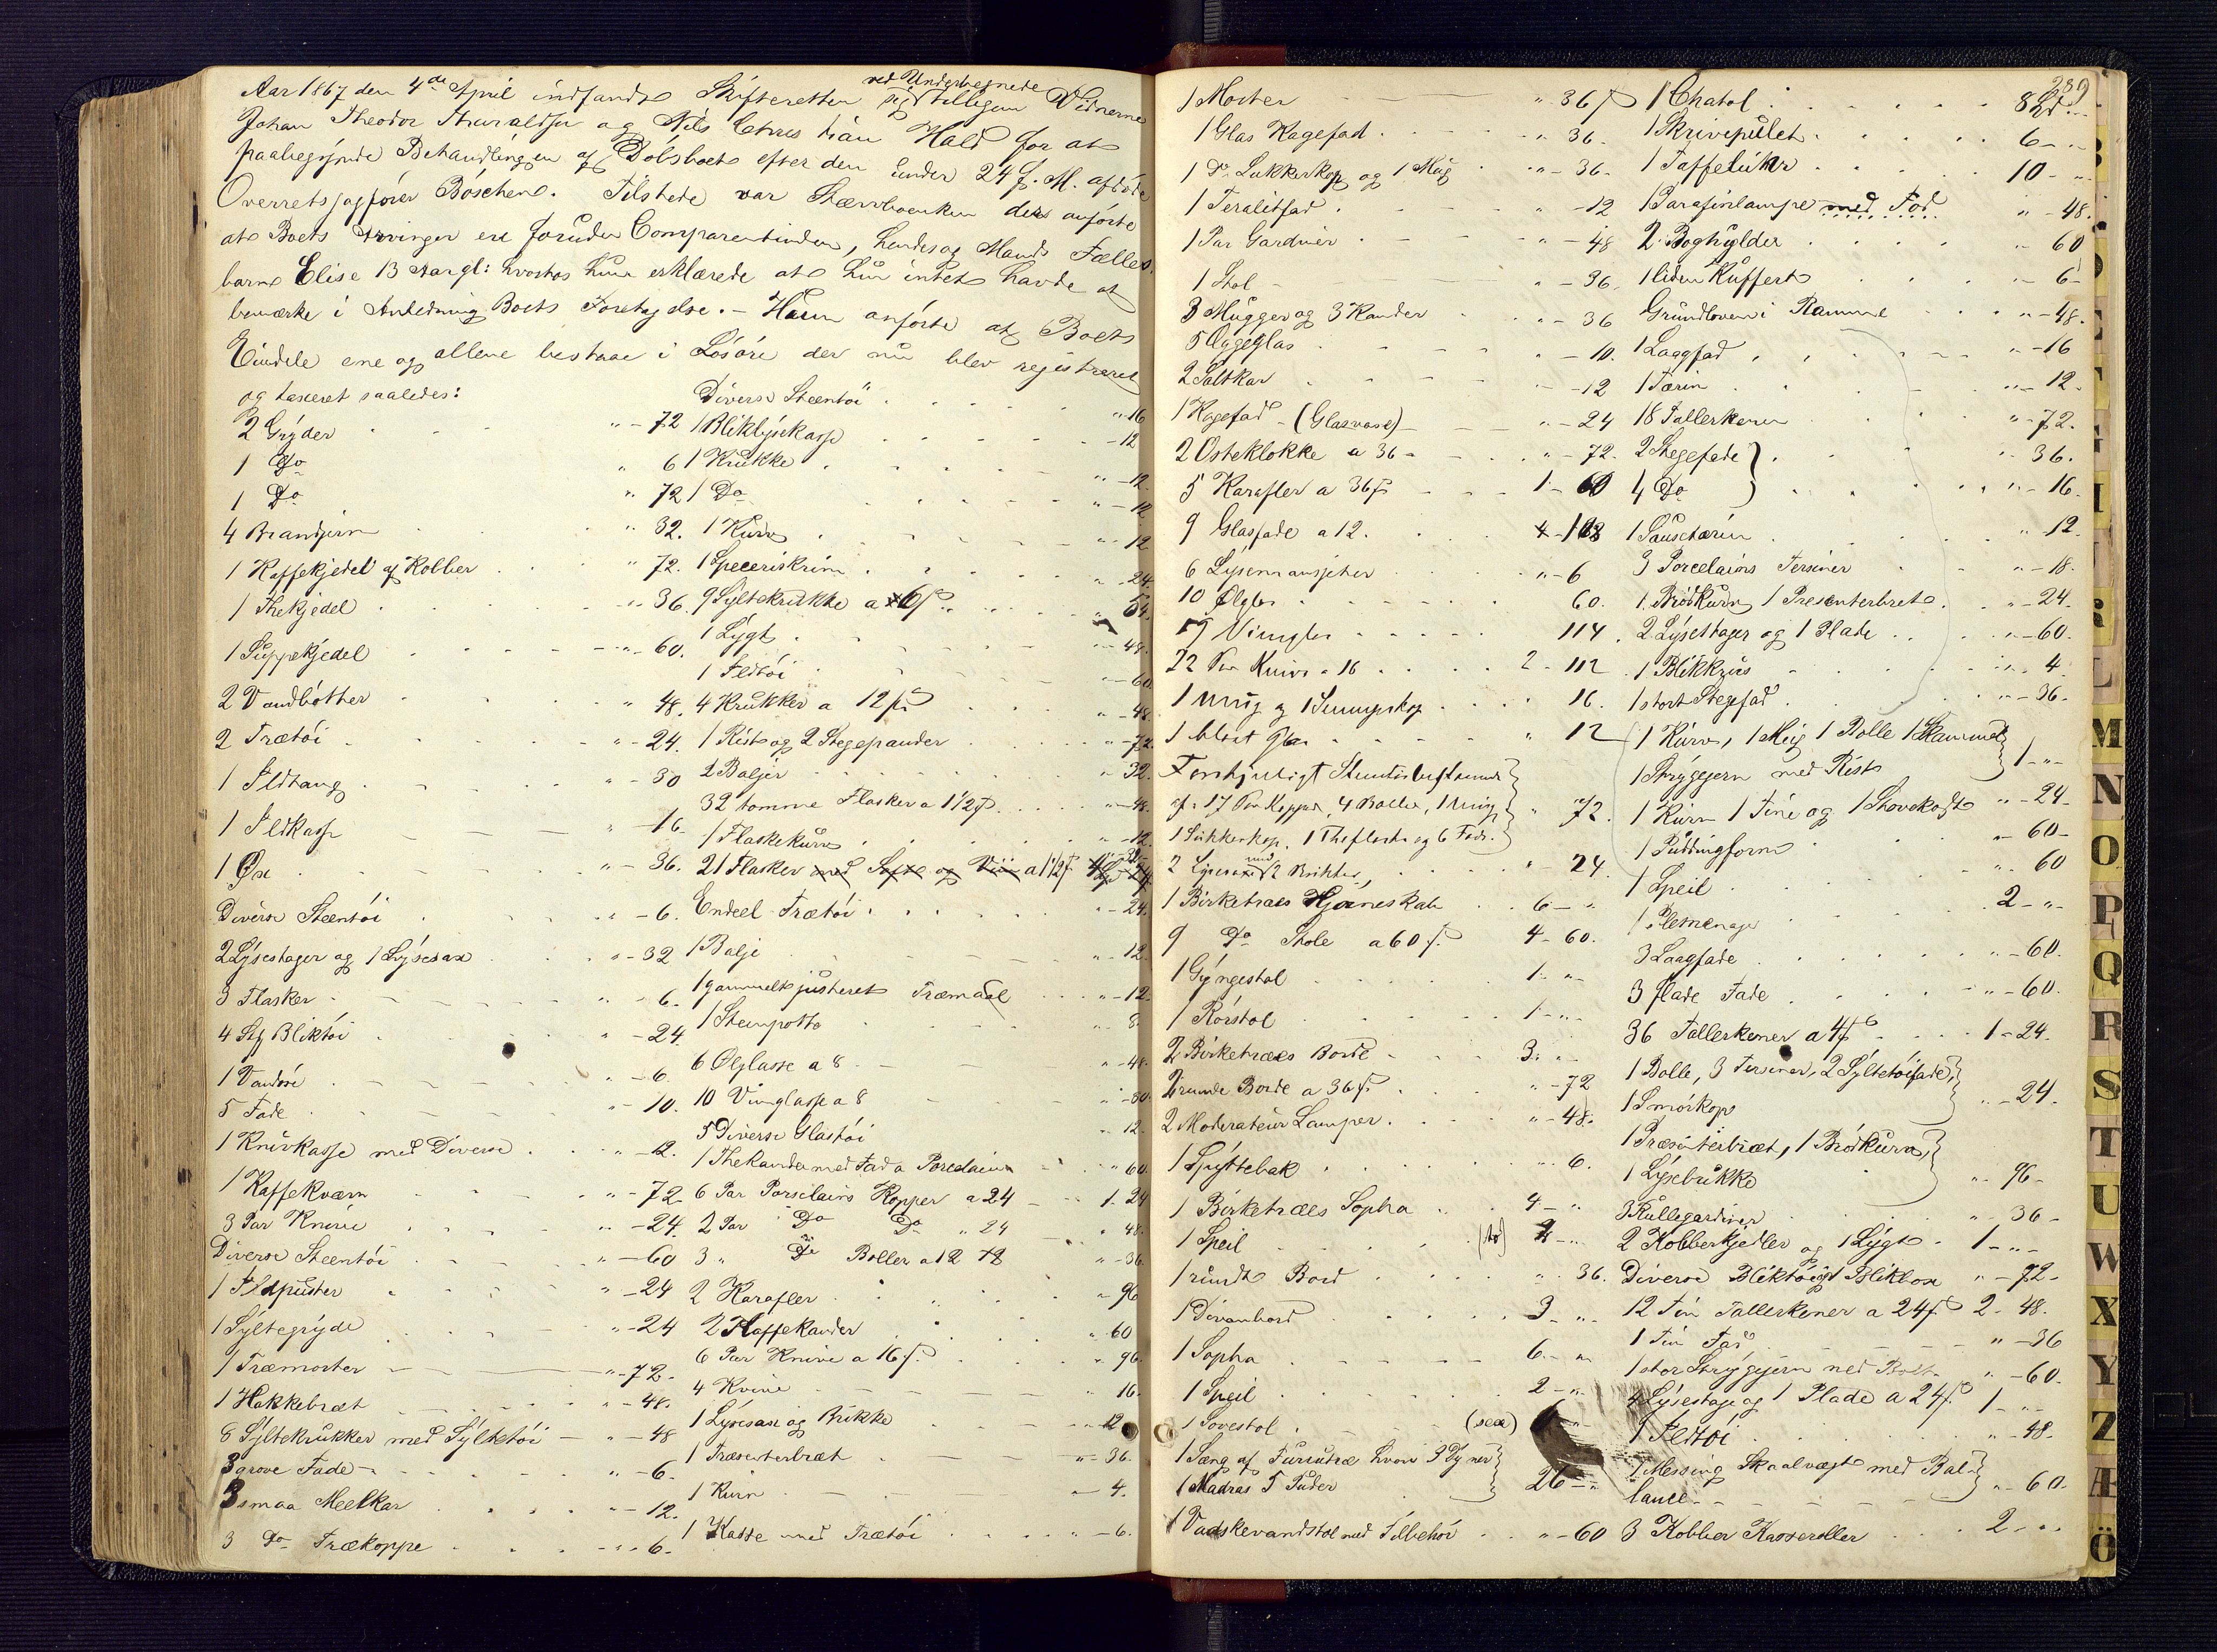 Aar 1867 den 4de April indfandt Skifteretten sig ved Undertegnede tilligem Vidnerne
Johan Theodor Thuraldsen og Nils Chris tian Hald for at
paabegynde Behandlingen af Dödsboet efter den under 24 f. M. afdöde
Overretssagförer Böschen. Tilstede var Stervboenken der anförte
at Boets Arvinger ere foruden Comparentinden, hendes og Mands Fælles
barn Elise 13 Aar gl: hvorhos hun erklærede at hun intet havde at
bemærke i Anledning Boets Foretagelse. - Hun anförte at Boets
Eiendele ene og allene bestaae i Lösöre der nu blev registreret
og taxeret saaledes:
2 Gryder " - 72
1 Do " 6
1 Do " 72
4 Brandjern " 32.
1 Kaffekjedel af Kobber " 72.
1 Thekjedel " 36.
1 Suppekjedel " - 60.
2 Vandbötter " 48.
2 Trætöi " - 24.
1 Ildtang " - 30
1 Ildkasse " - 16.
1 Öxe " - 36.
Diverse Steentöi " - 6.
2 Lysestager og 1 Lysesax " - 32
3 Flasker " - 6.
4 Blyktöi " - 24.
1 Vandsöe " - 6.
5 Fade " - 10.
1 Knivkasse med Diverse " - 12.
1 Kaffekværn " - 72
3 Par Knive " - 24.
Diverse Steentöi " - 60
1 Ildpuster " - 24
1 Syltegryde " - 24
1 Træmorter " - 72.
1 Hakkebræt " - 48.
8 Syltekrukker med Syltetöi " - 48
3 grove Fade " - 6.
3 smaa Meelkar " - 12.
3 Do Trækoppe " - 6.
Diverse Steentöi " - 16
1 Bliklysekasse " - 12
1 Krukke " - 12.
1 Do " - 12
1 Kurv " - 12
1 Speceriskrin " - 24.
9 Syltekrukke a 6 ß " 54.
1 Lygt " - 48.
1 Ildtöi " - 60
4 Krukker a 12 ß " - 48
1 Rist og 2 Stegepander " - 72
2 Baljer " 32.
32 tomme Flasker a 1 1/2 ß " - 48.
1 Flaskekurv " - 12.
21 Flasker med og Viin a 1 1/2 ß
Endeel Trætöi " - 24.
1 Balje " - 12.
1 gammelt justeret Træmaal " - 12.
1 Steenpotte " 8.
6 Ölglasse a 8 " - 48
10 Viinglasse a 8 " - 80.
5 Diverse Glastöi " 12.
1 Thekande med Fad a Porcelain " 60
6 Par Porselains Kopper a 24 1 - 24
2 Par Do Do " 24 " 48.
3 " Do Boller a 12 " - 36
2 Karafler " 96
2 Kaffekander " 60
6 Par Knive a 16 ß " 96.
4 Knive " 16.
1 Lysesax og Brikke " 12
1 Præsenterbræt " - 36.
1 Kurv " - 4.
1 Kasse med Trætöi " - 6.
289
1 Morter " 36 ß
1 Glas Kagefad " 36.
1 Do Sukkerkop og 1 Mug " - 36.
1 Teralitfad " - 12
1 Par Gardiner " - 48
1 Stol " - 36.
3 Mugger og 3 Kander " - 36
5 Æggeglas " - 10.
2 Saltkar " - 12
1 Kagefad - (Glasvase) " - 24
2 Osteklokke a 36 " - 72.
5 Karafler a 36 ß 1 - 60
9 Glasfade a 12. 108
6 Lysemansjetter " - 6
10 Ölglas 60.
19 Vinglas 114.
22 Par Knive a 16 2 - 112
1 Mug og 1 Sennepskop 16.
1 blaat Glas " 12
Forskjelligt Steentöi bestaaende
af: 17 Par Kopper, 4 Boller, 1 Mug " 72.
1 Sukkerkop, 1 Theflaske og 6 Fade.
2 Lysesaxe med 2 Brikter " 24.
1 Birketræes Hjörneskab 6 - "
9 Do Stole a 60 ß 4 - 60.
1 Gyngestol 1 - "
1 Rörstol 1 - "
2 Birketræes Borde 3 - "
2 runde Borde a 36 ß " - 72
2 Moderateur Lamper " - 48.
1 Spyttebak " 6.
1 Birketræes Sopha 4 - "
1 Speil (to) 2 - "
1 rundt Bord " 36.
1 Divanbord 3 - "
1 Sopha 6 - "
1 Speil 2 - "
1 Sovestol (sex)
1 Seng af Furutræ hvori 3 Dyner
1 Madras 5 Puder 26 - "
1 Vadskevandstol med Tilbehör " - 60
1 Chatol 8 Spd
1 Skrivepulet 6 - "
1 Taffeluhr 10 - "
1 Parafinlampe med Fod " - 48.
2 Boghylder " 60
1 liden Kuffert " 6
Grundloven i Ramme " - 48.
1 Laagfad " - 16
1 Terin " - 12.
18 Tallerkener " - 72.
2 Stegefade " 36.
4 Do " - 16.
1 Sauseterin " 12.
3 Porcelains Teriner " - 18.
1 Brödkurv 1 Presenterbret " - 24.
2 Lysestager og 1 Plade " - 60.
1 Blikkrus " 4.
1 stort Stegefad " - 36.
1 Kurv, 1 Mug 1 Bolle 1 Skammel
1 Strygejern med Rist 1 - "
1 Kurv 1 Tine og 1 Stövekost " - 24
1 Puddingform " - 60
1 Speil " 60
1 Plemenage 2 - "
3 Laagfade " - 60.
3 flade Fade " - 60.
36 Tallerkener a 4 ß 1 - 24.
1 Bolle, 3 Teriner, 2 Syltetöifade,
1 Smörkop " - 24.
1 Præsenteerbræt, 1 Brödkurv,
1 Lysebrikke " - 96
3 Rullegardiner " - 36
2 Kobberkjedler og 1 Lygt 1 - "
Diverse Bliktöi og 1 Blikboxe " - 72
12 Tin Tallerkener a 24 ß 2 - 48.
1 Tin Fad " - 36
1 stor Strygejern med Bolt " - 60.
4 Lysestage og 1 Plade a 24 ß 1 - "
1 Ildtöi " - 48.
1 Messing Skaalvægt med Ba-
lance " - 60.
3 Kobber Kasseroller 2 - "
B
D
E
F
G
I
L
M
N
O
P
Q
R
S
T
U
W
X
Y
Z
Æ
Ö